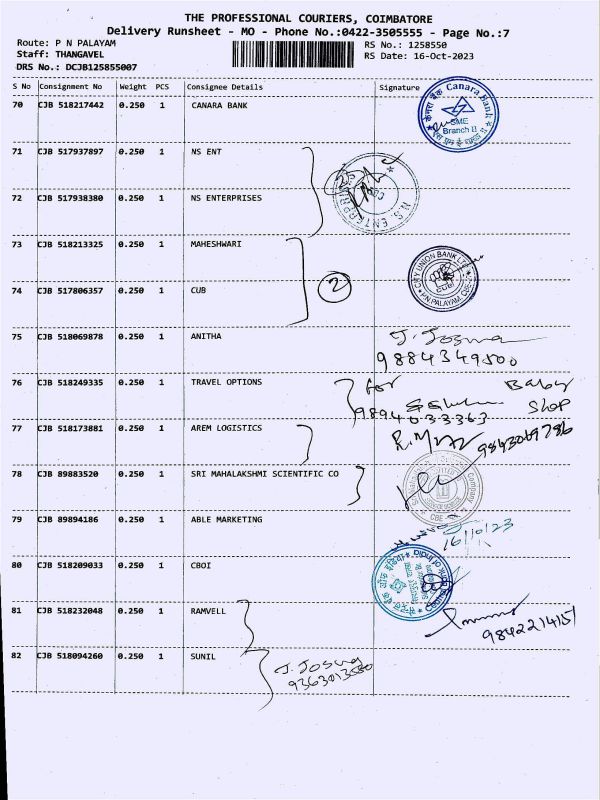 THE PROFESSIONAL COURIERS, COIMBATORE
Delivery Runsheet - MO - Phone No.:0422-3505555 - Page No.:7
Route: P N PALAYAM
Staff: THANGAVEL
DRS No.: DCJB125855007
RS No.: 1258550
RS Date: 16-Oct-2023
S No Consignment No Weight PCS Consignee Details Signature
70 CJB 518217442 0.250 1 CANARA BANK
केनरा बैंक Canara Bank
SME
Branch II
71 CJB 517937897 0.250 1 NS ENT
72 CJB 517938380 0.250 1 NS ENTERPRISES
2
N.S. ENTERPRISES
73 CJB 518213325 0.250 1 MAHESHWARI
74 CJB 517806357 0.250 1 CUB
2
CITY UNION BANK LTD
P.N.PALAYAM, CBE
75 CJB 518069878 0.250 1 ANITHA
J. Josua
9884349500
76 CJB 518249335 0.250 1 TRAVEL OPTIONS
for
Baby
Shop
9894033363
77 CJB 518173881 0.250 1 AREM LOGISTICS
9843069786
78 CJB 89883520 0.250 1 SRI MAHALAKSHMI SCIENTIFIC CO
Company
CBE
79 CJB 89894186 0.250 1 ABLE MARKETING
16/10/23
80 CJB 518209033 0.250 1 CBOI
Central Bank of India
81 CJB 518232048 0.250 1 RAMVELL
9842214151
82 CJB 518094260 0.250 1 SUNIL
J. Josua
9363013580